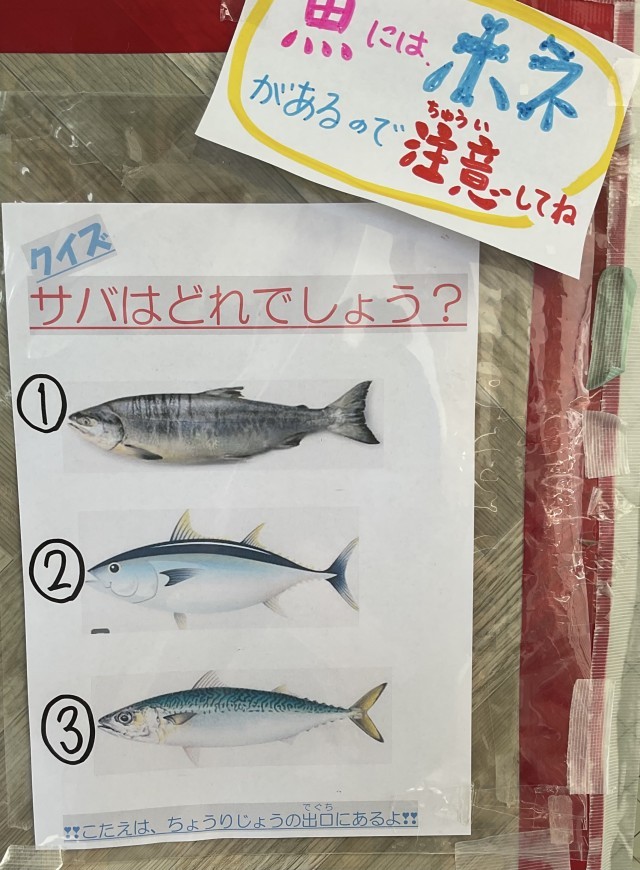 魚には、ホネ
があるので注意してね
ちゅうい
クイズ
サバはどれでしょう？
①
②
③
❣❣こたえは、ちょうりじょうの出口にあるよ❣❣
でぐち